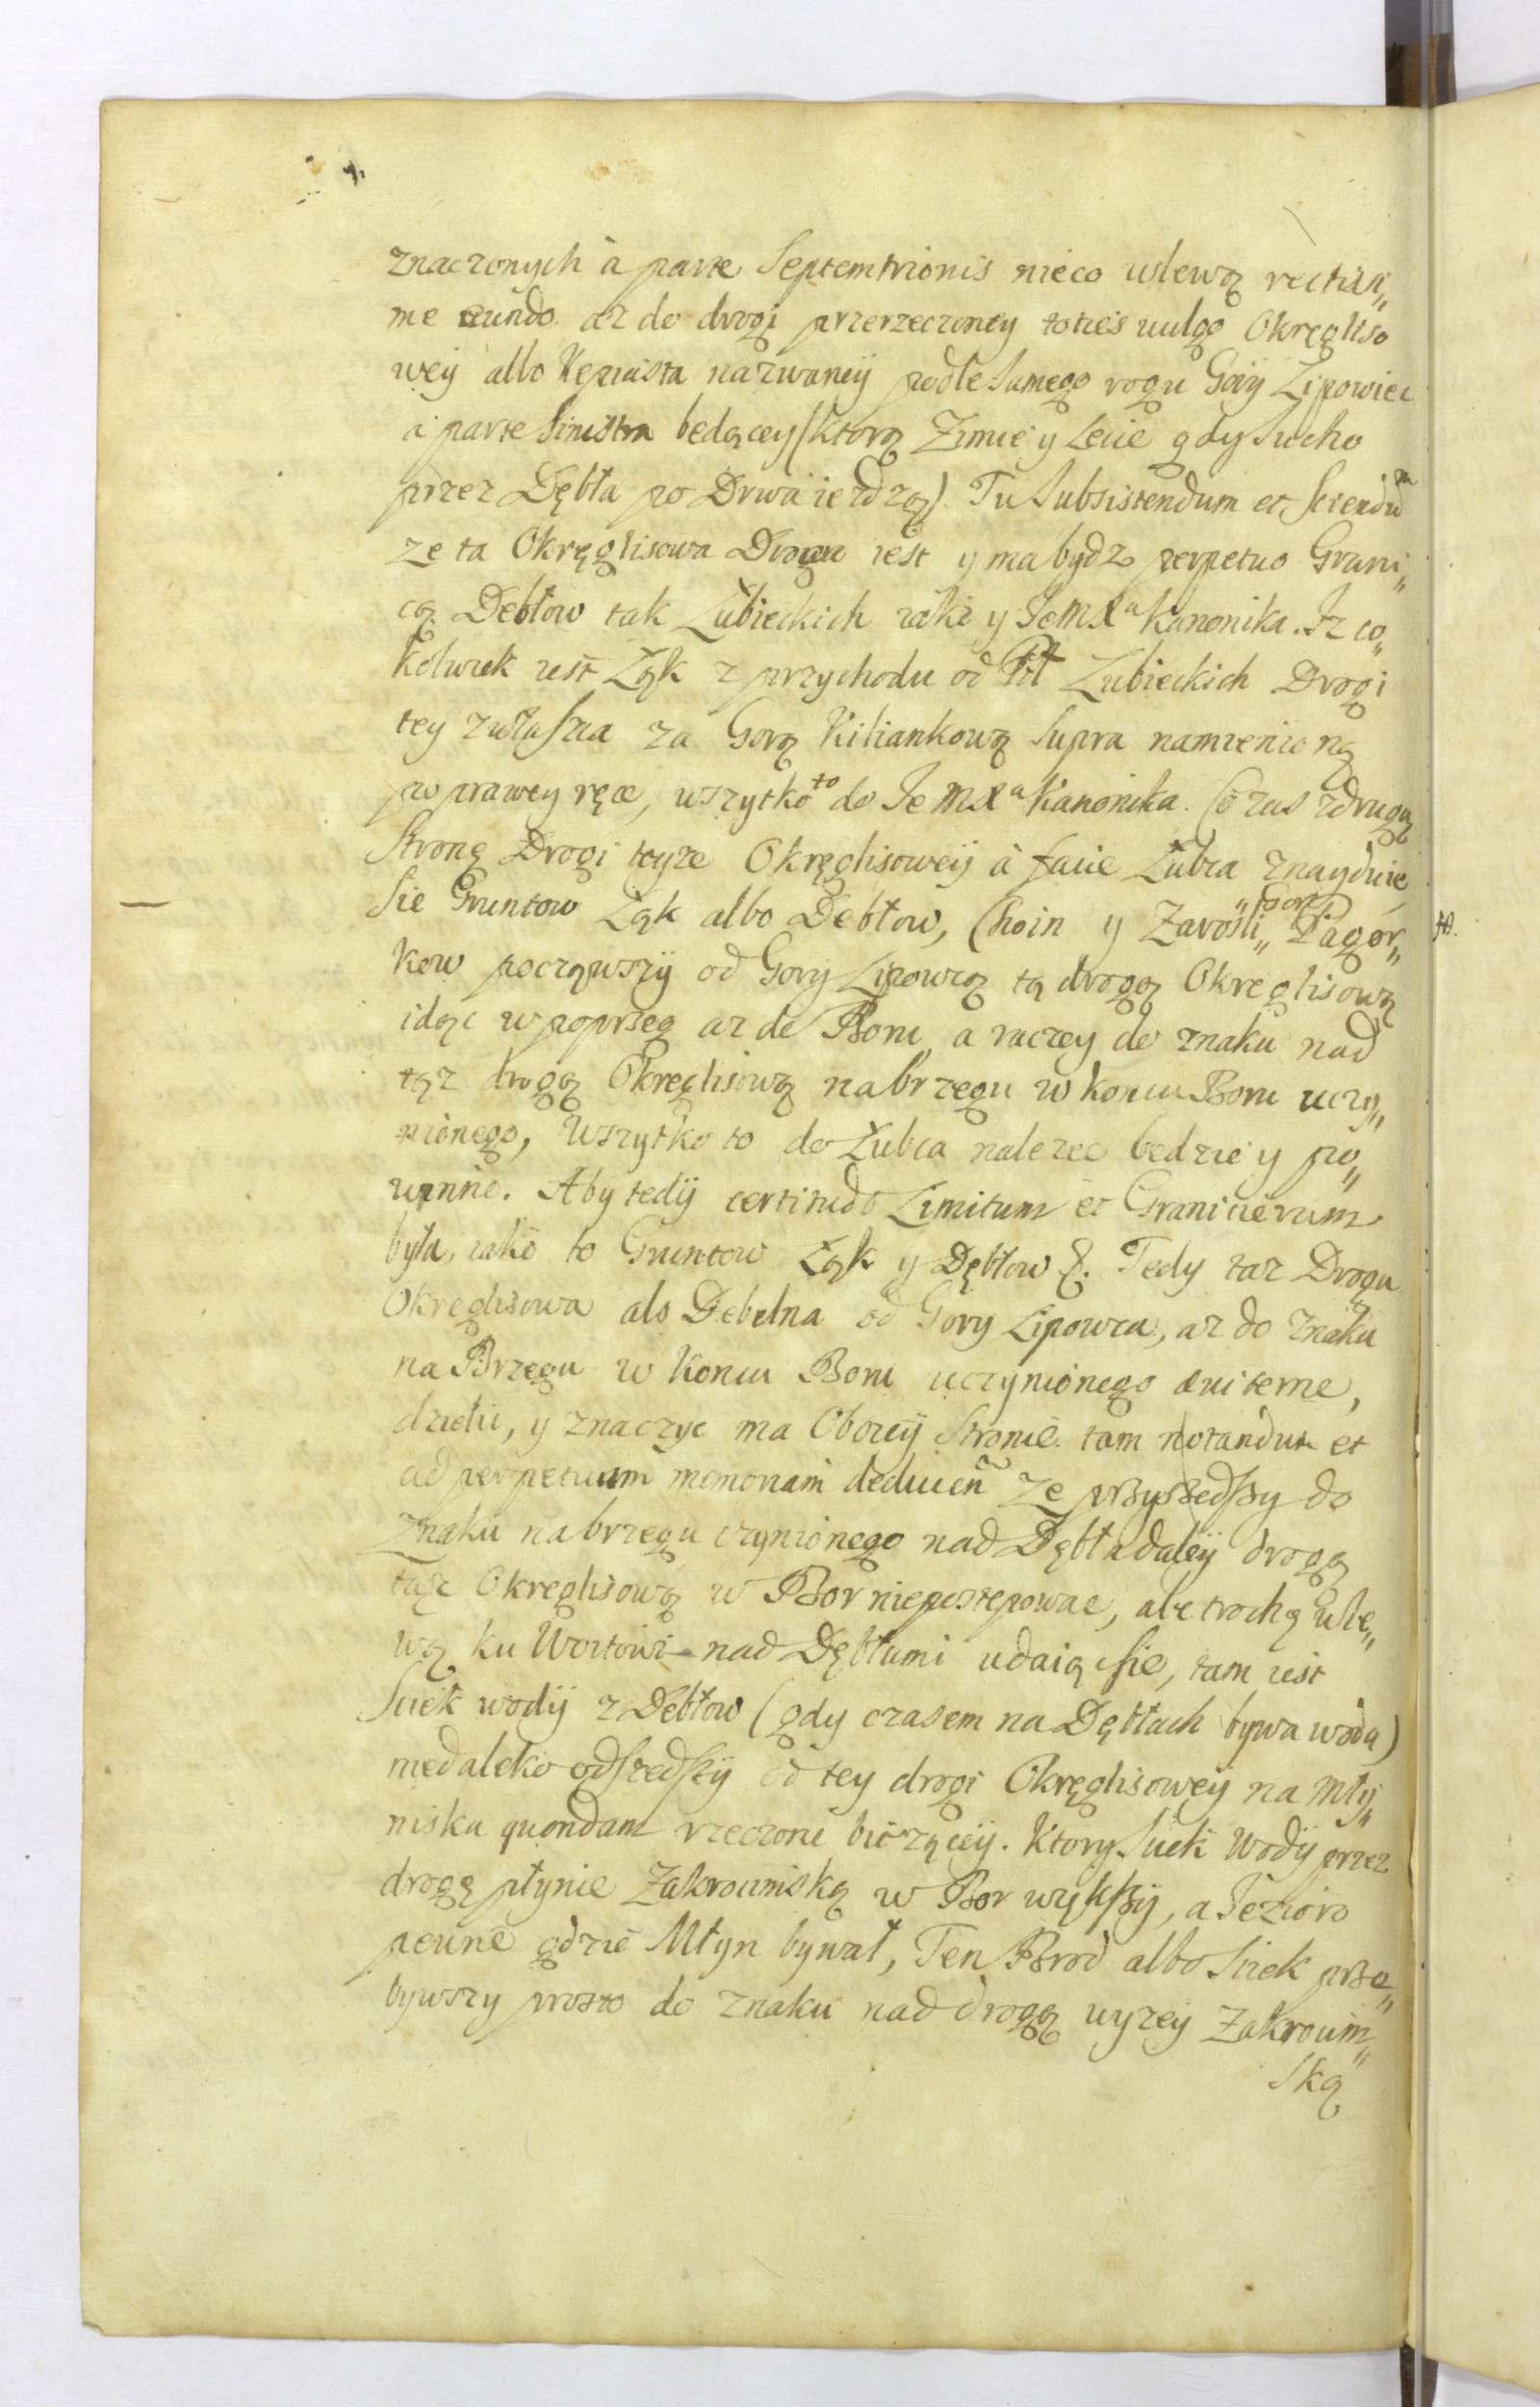 znaczonych à parte Septemtrionis nieco wlewą rectiss„
me eundo az do drogi przerzeczoney toties vulgo Okręgliso
weÿ albo Kępiasta nazwaneÿ podle samego rogu Góry Lipowiec
à parte sinistra będącey (ktorą Zimie y Lecie gdy sucho
przez Dębła po Drwa ieżdzą). Tu Subsistendum et Sciendū
ze ta Okręglisowa Droga iest y ma bydz perpetuo Grani„
cą Debłow tak Łubieckich iako y JeMXa Kanonika. Iz co„
kolwiek iest Łąk z przychodu od Pół Łubieckich Drogi
tey zwłaszcza za Gorą Kiliankową supra namienioną
po prawey ręce, wszytko to do JeMXa Kanonika. Co zas z drugą
Stronę Drogi teyze Okręglisoweÿ à facie Łubca znayduie
Sie Gruntow Łąk albo Debłow, Choin y Zarosli „Gor„ Pagor„
kow począwszÿ od Gorÿ Lipowca tą drogą Okręglisową
idąc w poprzeg az do Boru a raczey do znaku nad
tąz drogą Okręglisową na brzegu w koncu Boru uczy„
nionego, Wszytko to do Łubca nalezec będzie y po„
winno. Aby tedÿ certitudo Limitum et Granicierum
była, iako to Gruntow Łąk y Dębłow &. Tedy taz Droga
Okręglisowa als Debelna od Gory Lipowca, az do Znaku
na Brzegu w Koncu Boru uczynionego æuiterne,
dzielic, y znaczyc ma Oboieÿ Stronie. tam notandum et
ad perpetuam memoriam deducen̄ Ze przyszedszy do
Znaku na brzegu czynionego nad Dębła daleÿ drogą
tąz Okręglisową w Bor niepostępowac, ale trochę wle„
wą ku Wortowi nad Dębłami udaiąc sie, tam iest
Sciek wodÿ z Debłow (gdy czasem na Dębłach bywa woda)
niedaleko odszedszÿ od tey drogi Okręglisoweÿ na Mły„
niska quondam rzeczone biezącey. Ktory Sciek Wodÿ przez
drogę płynie Zakroumską w Bor większÿ, a Jezioro
pewne gdzie Młyn bywał, Ten Brod albo Sciek prze„
bywszy prosto do znaku nad drogą wyzeÿ Zakroum„
ską